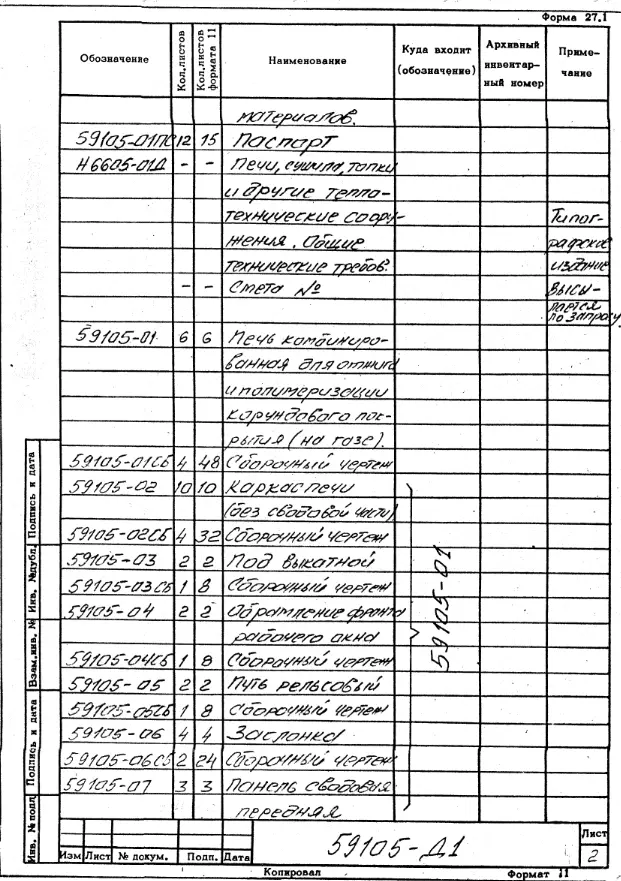 Форма 27.1
Обозначение Кол.листов Кол.листов формата 11 Наименование Куда входит (обозначение) Архивный инвентар- ный номер Приме- чание
материалов.
59105-01ПС 12 15 Паспорт
Н6605-01Д - - Печи, сушила, топки
и другие тепло-
технические соору- Типог-
жения. Общие рафское
технические требов. издание
- - Смета № высы-
лается
по запросу
59105-01 6 6 Печь комбиниро-
ванная для отжига
и полимеризации
корундового пок-
рытия (на газе).
59105-01СБ 4 48 Сборочный чертеж
59105-02 10 10 Каркас печи
(без сводовой части)
59105-02СБ 4 32 Сборочный чертеж
59105-03 2 2 Под выкатной
59105-03СБ 1 8 Сборочный чертеж
59105-04 2 2 Обрамление фронта
рабочего окна
59105-04СБ 1 8 Сборочный чертеж
59105-05 2 2 Путь рельсовый
59105-05СБ 1 8 Сборочный чертеж
59105-06 4 4 Заслонка
59105-06СБ 2 24 Сборочный чертеж
59105-07 3 3 Панель сводовая
передняя
59105-01
Подпись и дата
Инв. №дубл.
Взам.инв. №
Подпись и дата
Инв. № подл
Изм Лист № докум. Подп. Дата
59105-Д1
Лист
2
Копировал Формат 11